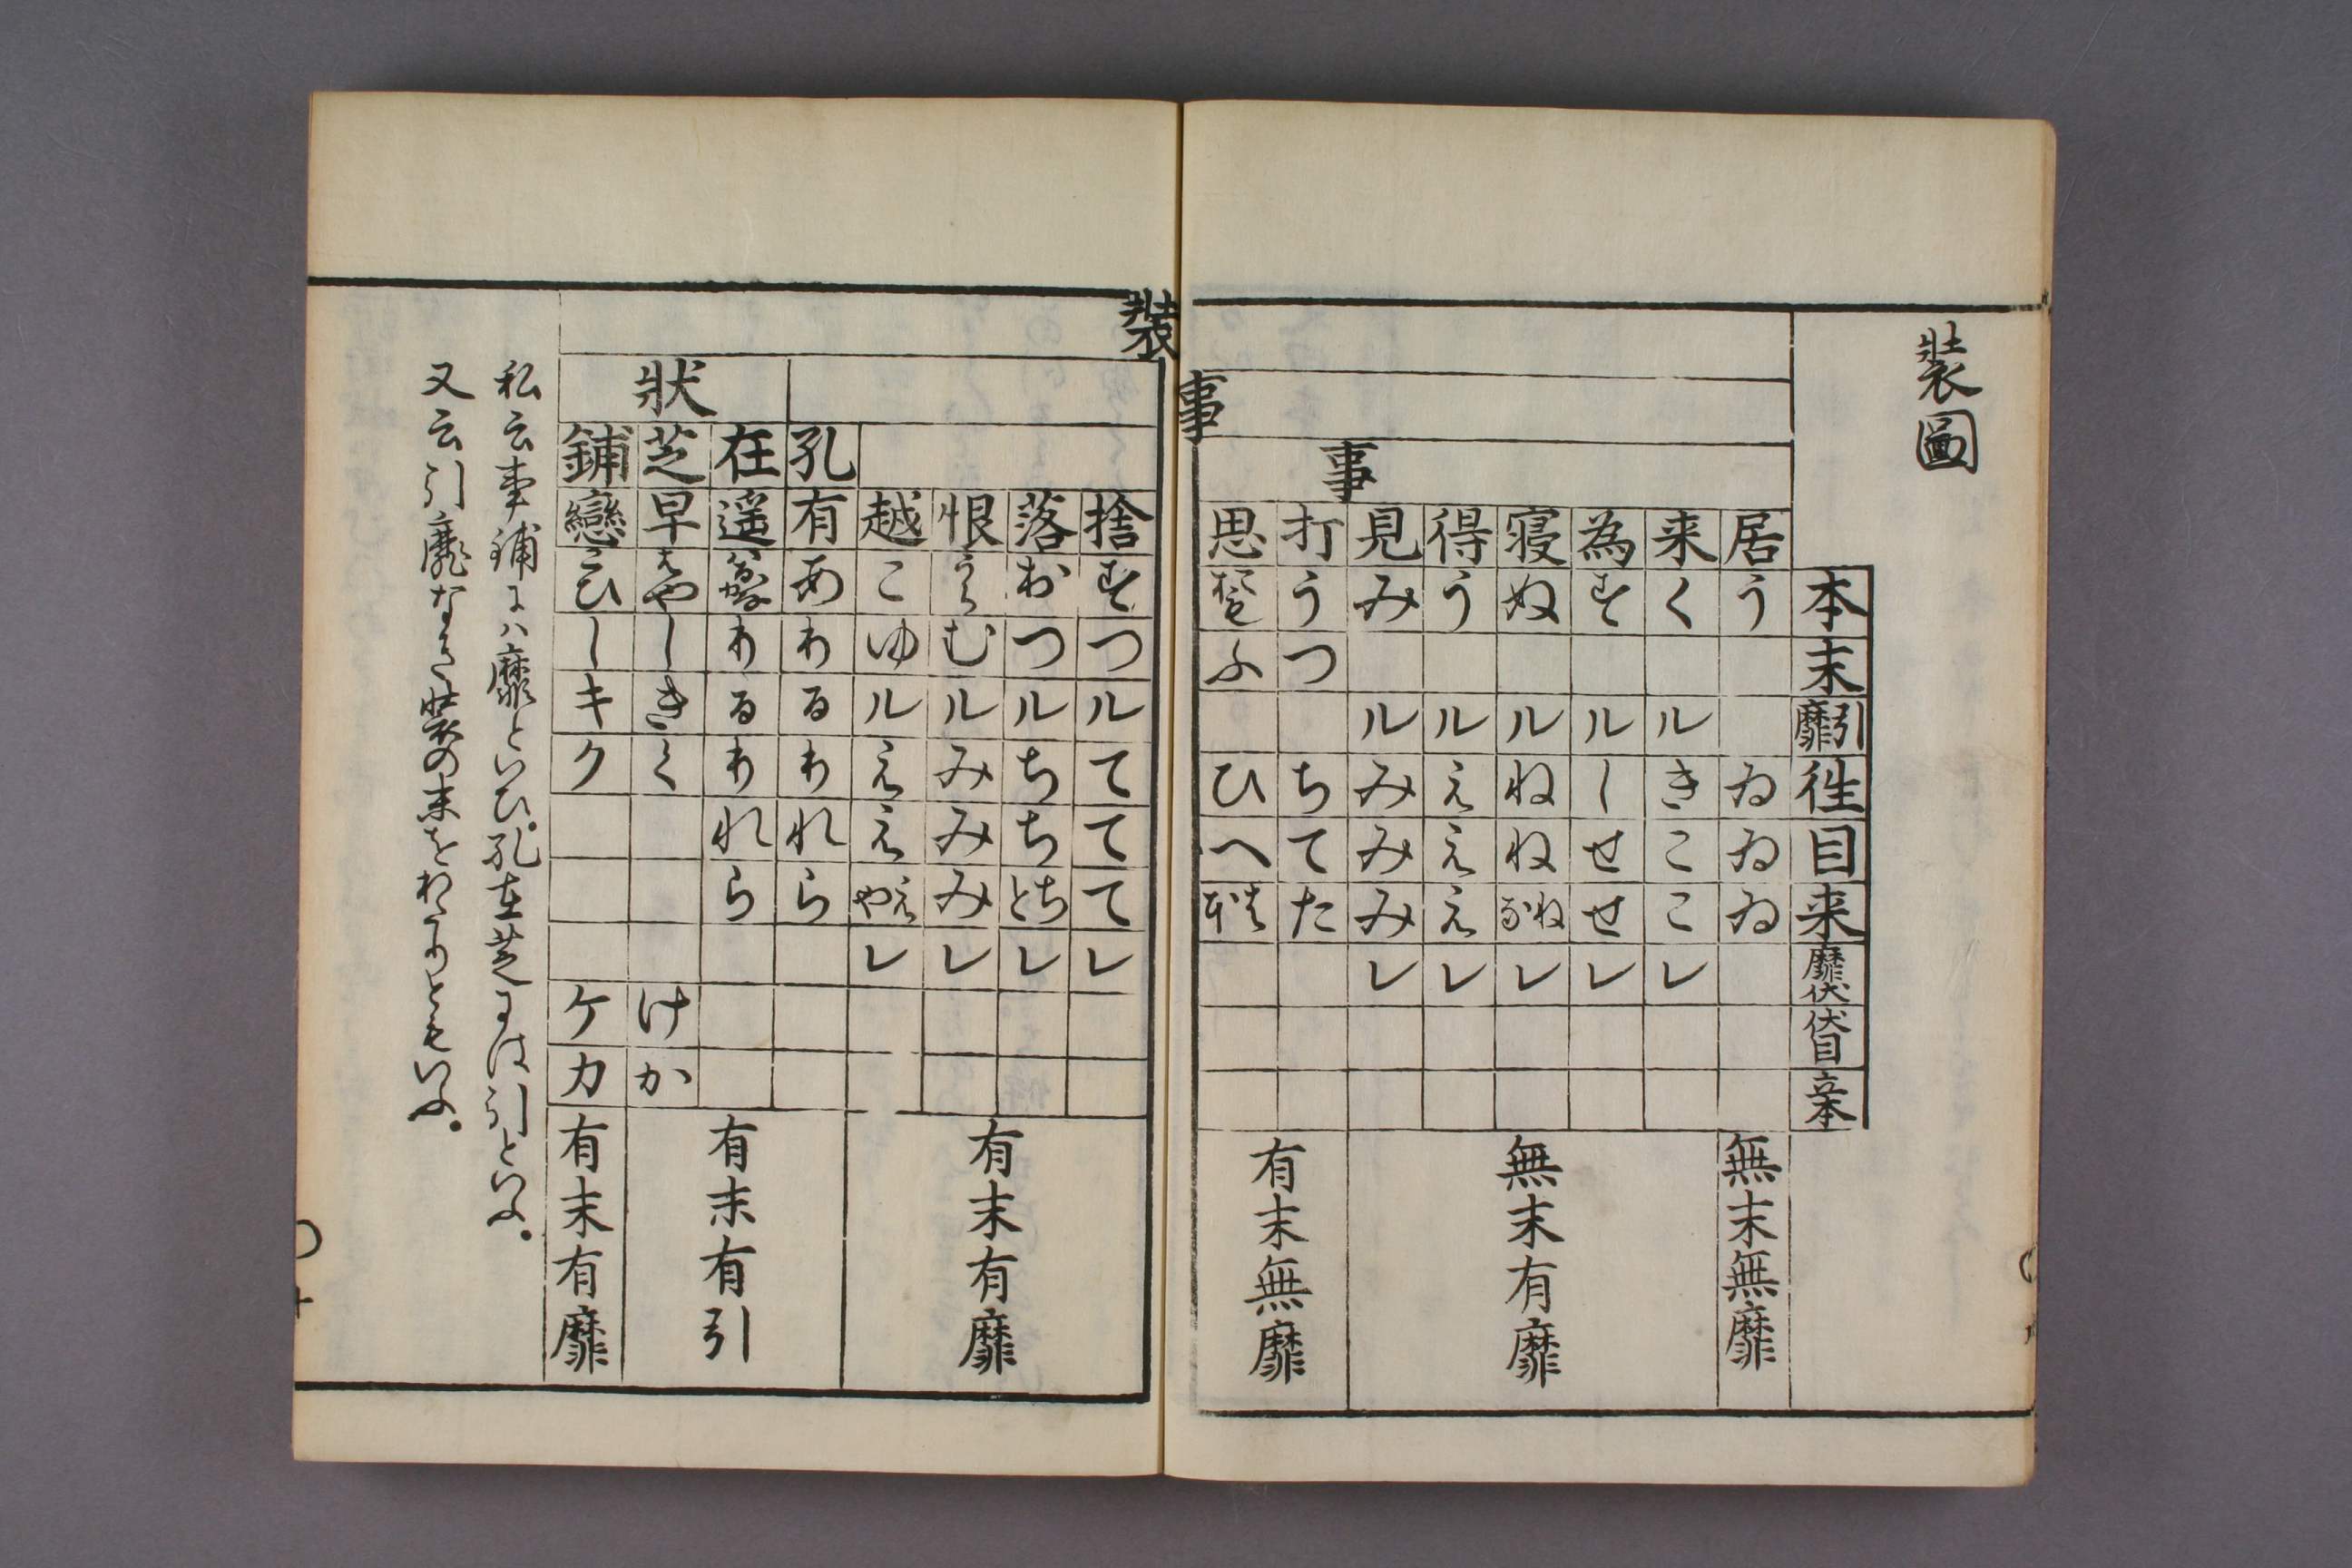 装圖
本 末 引靡 往 目 来 靡伏 伏目 立本
装
事
事
居 う ゐ ゐ ゐ
無末無靡
来 く ル き こ こ レ
為 す ル し せ せ レ
寝 ぬ ル ね ね ねな レ
得 う ル え え え レ
見 み ル み み み レ
無末有靡
打 う つ ち て た
思 おも ふ ひ へ はほ
有末無靡
捨 す つ ル て て て レ
落 お つ ル ち ち ちと レ
恨 うら む ル み み み レ
越 こ ゆ ル え え えや レ
有末有靡
孔 有 あ り る り れ ら
狀
在 遥 はるかな り る り れ ら
芝 早 はや し き く け か
有末有引
鋪 戀 こひ し キ ク ケ カ
有末有靡
私云事鋪にハ靡といひ。孔在芝には引といふ。
又云引靡なき装の末をともいふ。